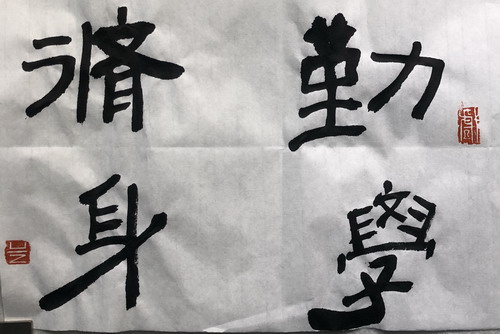 勤學
脩身